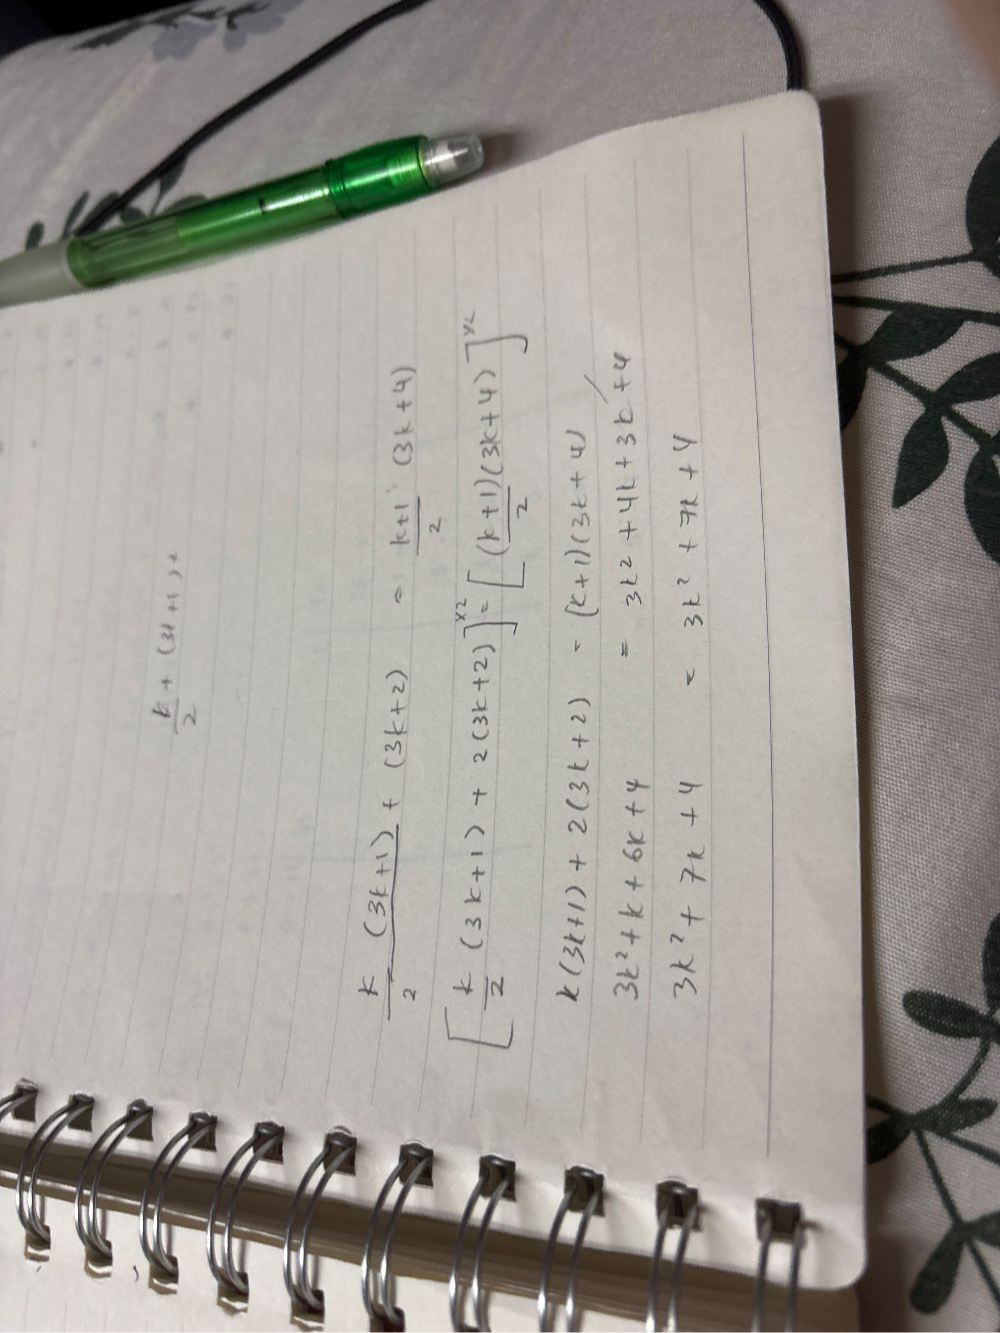 k/2 + (3k+1) +
k(3k+1)/2 + (3k+2) = k+1/2 (3k+4)
[k/2 (3k+1) + 2(3k+2)]×2 = [(k+1)(3k+4)/2]×2
k(3k+1) + 2(3k+2) = (k+1)(3k+4)
3k²+k+6k+4 = 3k²+4k+3k+4
3k²+7k+4 = 3k²+7k+4